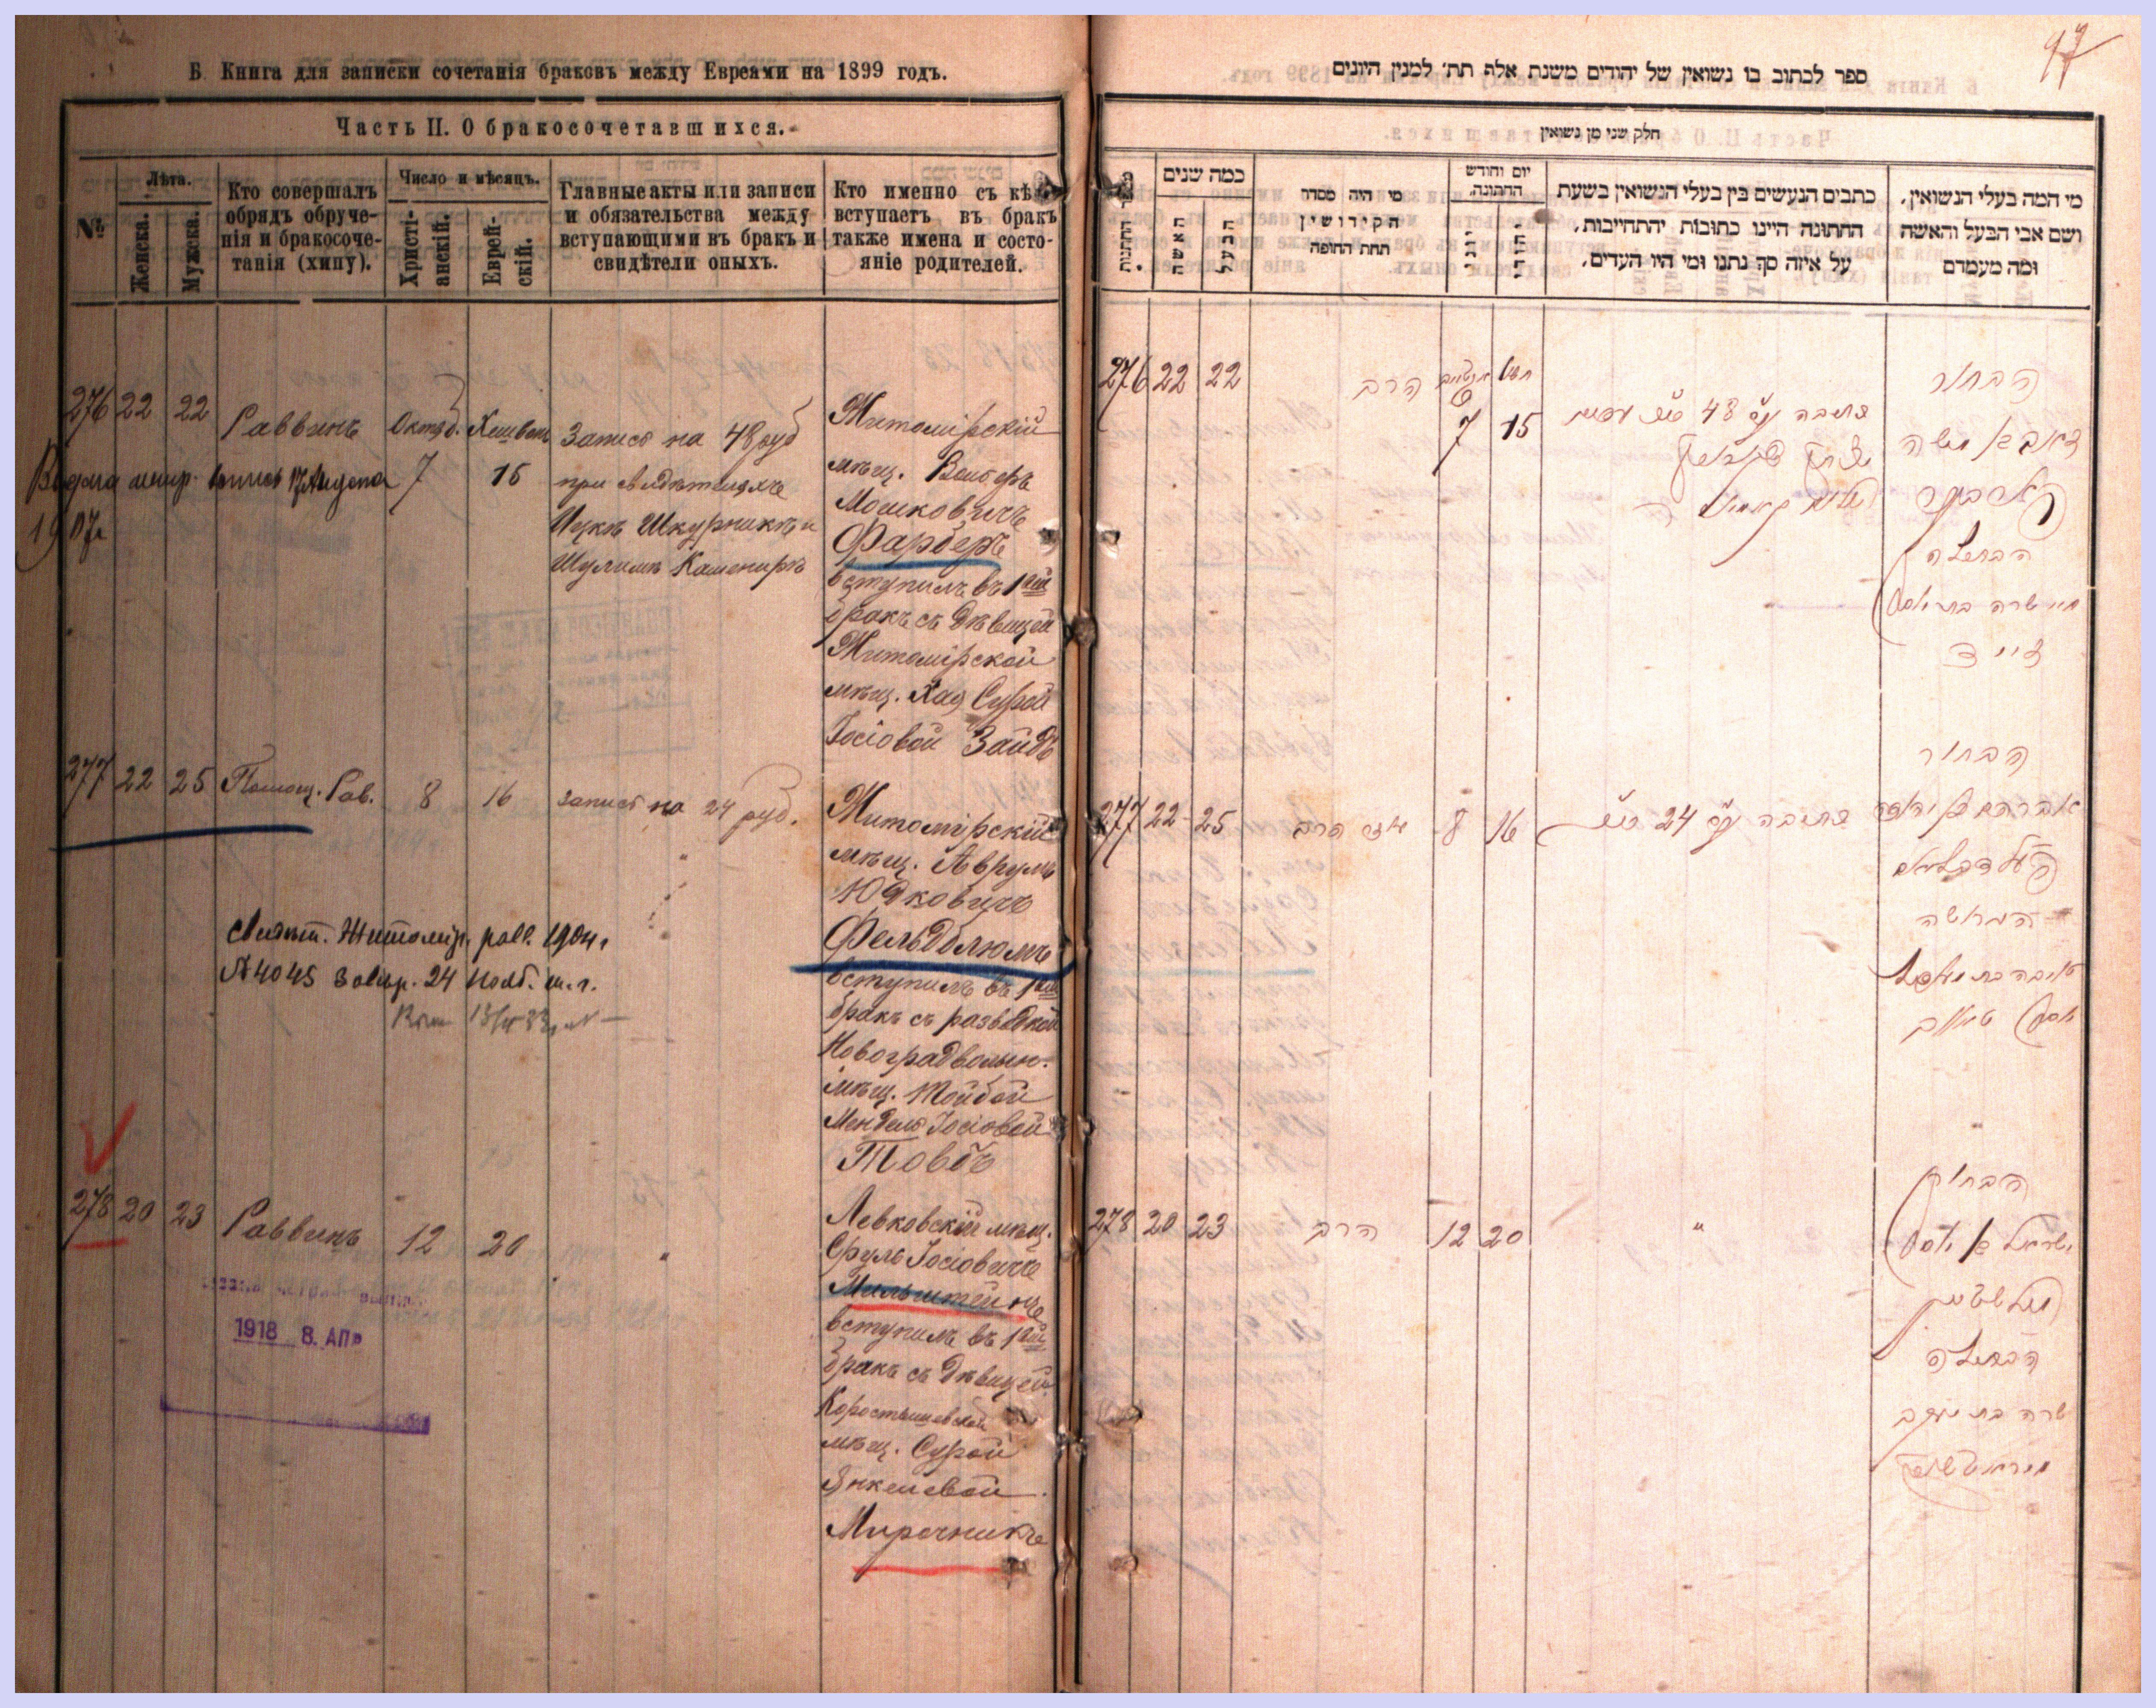 Б. Книга для записки сочетанія браковъ между Евреями на 1899 годъ.
Часть II. О бракосочетавшихся.
№
Лѣта.
Женска.
Мужска.
Кто совершалъ
обрядъ обруче-
нія и бракосоче-
танія (хипу).
Число и мѣсяцъ.
Христі-
анскій.
Еврей-
скій.
Главные акты или записи
и обязательства между
вступающими въ бракъ и
свидѣтели оныхъ.
Кто именно съ кѣмъ
вступаетъ въ бракъ
также имена и состо-
яніе родителей.
276 22 22 Раввинъ Октяб. Хешвонъ
7 15
Запись на 48 руб
при свидѣтеляхъ
Ицкѣ Шкурникѣ и
Шулимѣ Кашенирѣ
1907г
Житомірскій
мѣщ.
Мошковичъ
Фарберъ
вступилъ въ 1ый
бракъ съ дѣвицей
Житомірской
мѣщ. Хая Сурой
Іосіовой Зайдъ
277 22 25 Помощ. Рав. 8 16 запись на 24 руб.
Житомірскій
мѣщ. Аврумъ
Юдковичъ
Фельдблюмъ
вступилъ въ 1ый
бракъ съ разводкой
Новоградволын.
мѣщ. Тойбой
Мендель Іосіовой
Товбъ
Свидѣт. Житомір. равв. 1904 г
№ 4045 24 Нояб. т. г.
278 20 23 Раввинъ 12 20 "
Левковскій мѣщ.
Сруль Іосіовичъ
Мильштейнъ
вступилъ въ 1ый
бракъ съ дѣвицей
Коростышевской
мѣщ. Сурой
Янкелевой
Мирочникъ
1918 8. АПР
97
ספר לכתוב בו נשואין של יהודים משנת אלף תת׳ למנין היונים
חלק שני מן נשואין
כמה שנים
האשה
הבעל
מי היה מסדר
הקידושין
תחת החופה
יום וחודש
החתונה.
יוני
יהודי
כתבים הנעשים בין בעלי הנשואין בשעת
החתונה היינו כתובות יהתחייבות,
על איזה סך נתנו ומי היו העדים.
מי המה בעלי הנשואין,
ושם אבי הבעל והאשה
ומה מעמדם
276 22 22 הרב
7 15
כתובה 48
הבחור
הבתולה
חיי שרה בת יוסף
זייד
277 22 25 הרב 8 16 כתובה 24
הבחור
אברהם
הגרושה
278 20 23 הרב 12 20 "
הבחור
ישראל ב יוסף
מילשטיין
הבתולה
שרה בת יעקב